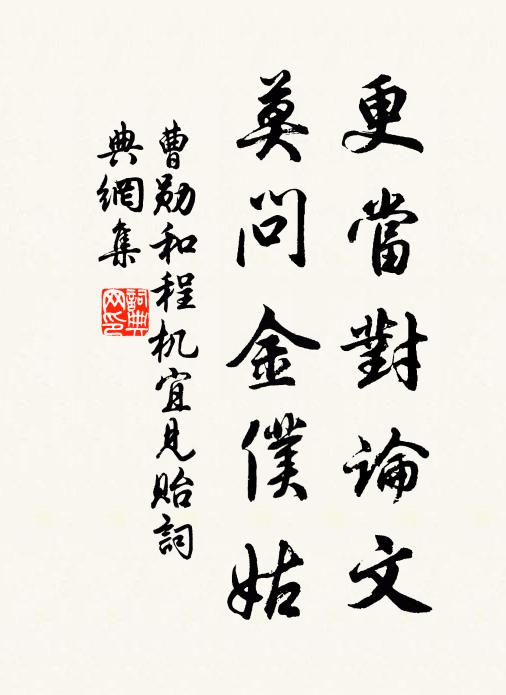 更當對論文
莫問金僕姑
曹勛和程机宜見貽詞
典網集
詞典
网印